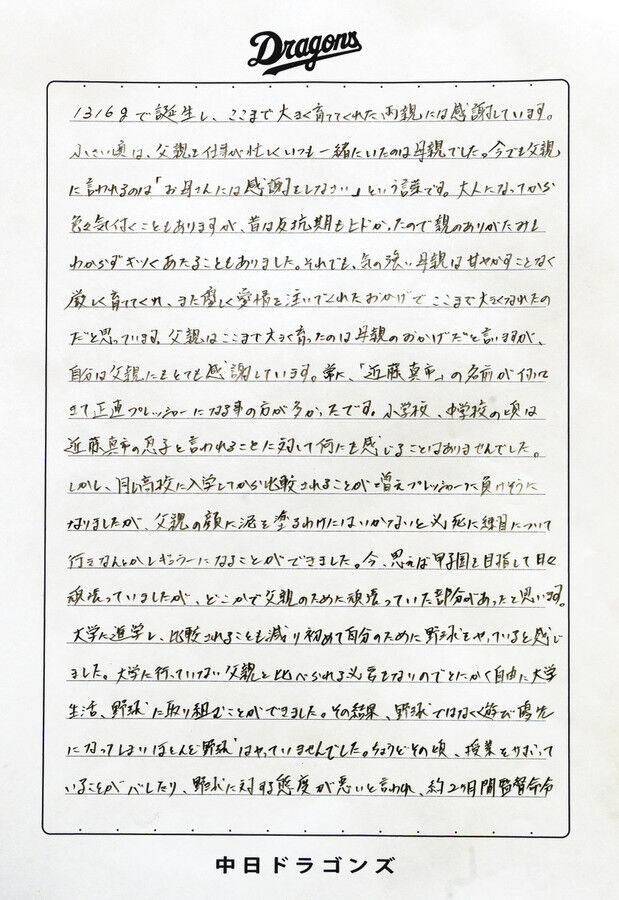 Dragons
1316gで誕生し、ここまで大きく育ててくれた両親には感謝しています。
小さい頃は、父親も仕事が忙しくいつも一緒にいたのは母親でした。今でも父親
に言われるのは「お母さんには感謝をしなさい」という言葉です。大人になってから
色々気付くこともありますが、昔は反抗期もヒドかったので親のありがたみも
わからずキツくあたることもありました。それでも、気の強い母親は甘やかすことなく
厳しく育ててくれ、また優しく愛情を注いでくれたおかげでここまで大きくなれたの
だと思っています。父親はここまで大きく育ったのは母親のおかげだと言いますが、
自分は父親にもとても感謝しています。常に、「近藤真市」の名前が付いて
きて正直プレッシャーになる事の方が多かったです。小学校、中学校の頃は
近藤真市の息子と言われることに対して何にも感じることはありませんでした。
しかし、同じ高校に入学してから比較されることが増えプレッシャーに負けそうに
なりましたが、父親の顔に泥を塗るわけにはいかないと必死に練習について
行きなんとかレギュラーになることができました。今、思えば甲子園を目指して日々
頑張っていましたが、どこかで父親のために頑張っていた部分があったと思います。
大学に進学し、比較されることも減り初めて自分のために野球をやっていると感じ
ました。大学に行っていない父親と比べられる必要もないのでとにかく自由に大学
生活、野球に取り組むことができました。その結果、野球ではなく遊び優先
になってしまいほとんど野球はやっていませんでした。ちょうどその頃、授業をサボって
いることがバレたり、野球に対する態度が悪いと言われ、約2ヶ月間監督命令
中日ドラゴンズ